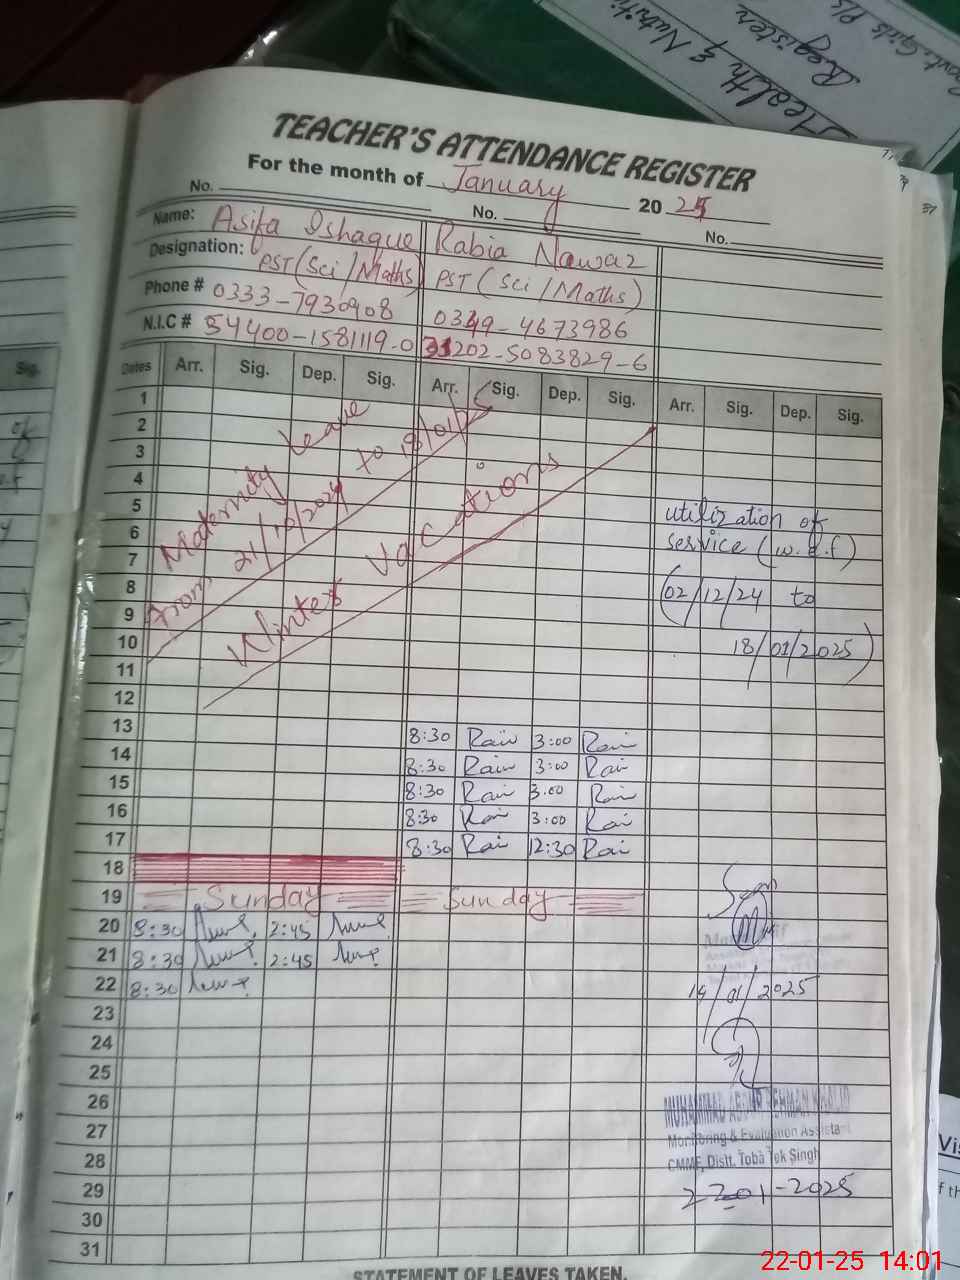 Health & Nutriti
Register
Govt. Girls P/s
TEACHER'S ATTENDANCE REGISTER
For the month of January 20 25
No. No. No.
Name: Asifa Ishaque Rabia Nawaz
Designation: PST (Sci / Maths) PST (Sci / Maths)
Phone # 0333-7930908 0349-4673986
N.I.C # 54400-1581119-0 31202-5083829-6
Dates Arr. Sig. Dep. Sig. Arr. Sig. Dep. Sig. Arr. Sig. Dep. Sig.
Maternity Leave
From 21/10/2024 to 18/01/25
Winter Vacations
utilization of
service (w.e.f)
(02/12/24 to
18/01/2025)
1
2
3
4
5
6
7
8
9
10
11
12
13 8:30 Rai 3:00 Rai
14 8:30 Rai 3:00 Rai
15 8:30 Rai 3:00 Rai
16 8:30 Rai 3:00 Rai
17 8:30 Rai 12:30 Rai
18
19 Sunday Sunday
20 8:30 2:45
21 8:30 2:45
22 8:30
23
24
25
26
27
28
29
30
31
Seen
14/01/2025
MUHAMMAD ABDUR REHMAN KHALID
Monitoring & Evaluation Assistant
CMMF, Distt. Toba Tek Singh
22-01-2025
STATEMENT OF LEAVES TAKEN.
Sig.
22-01-25 14:01